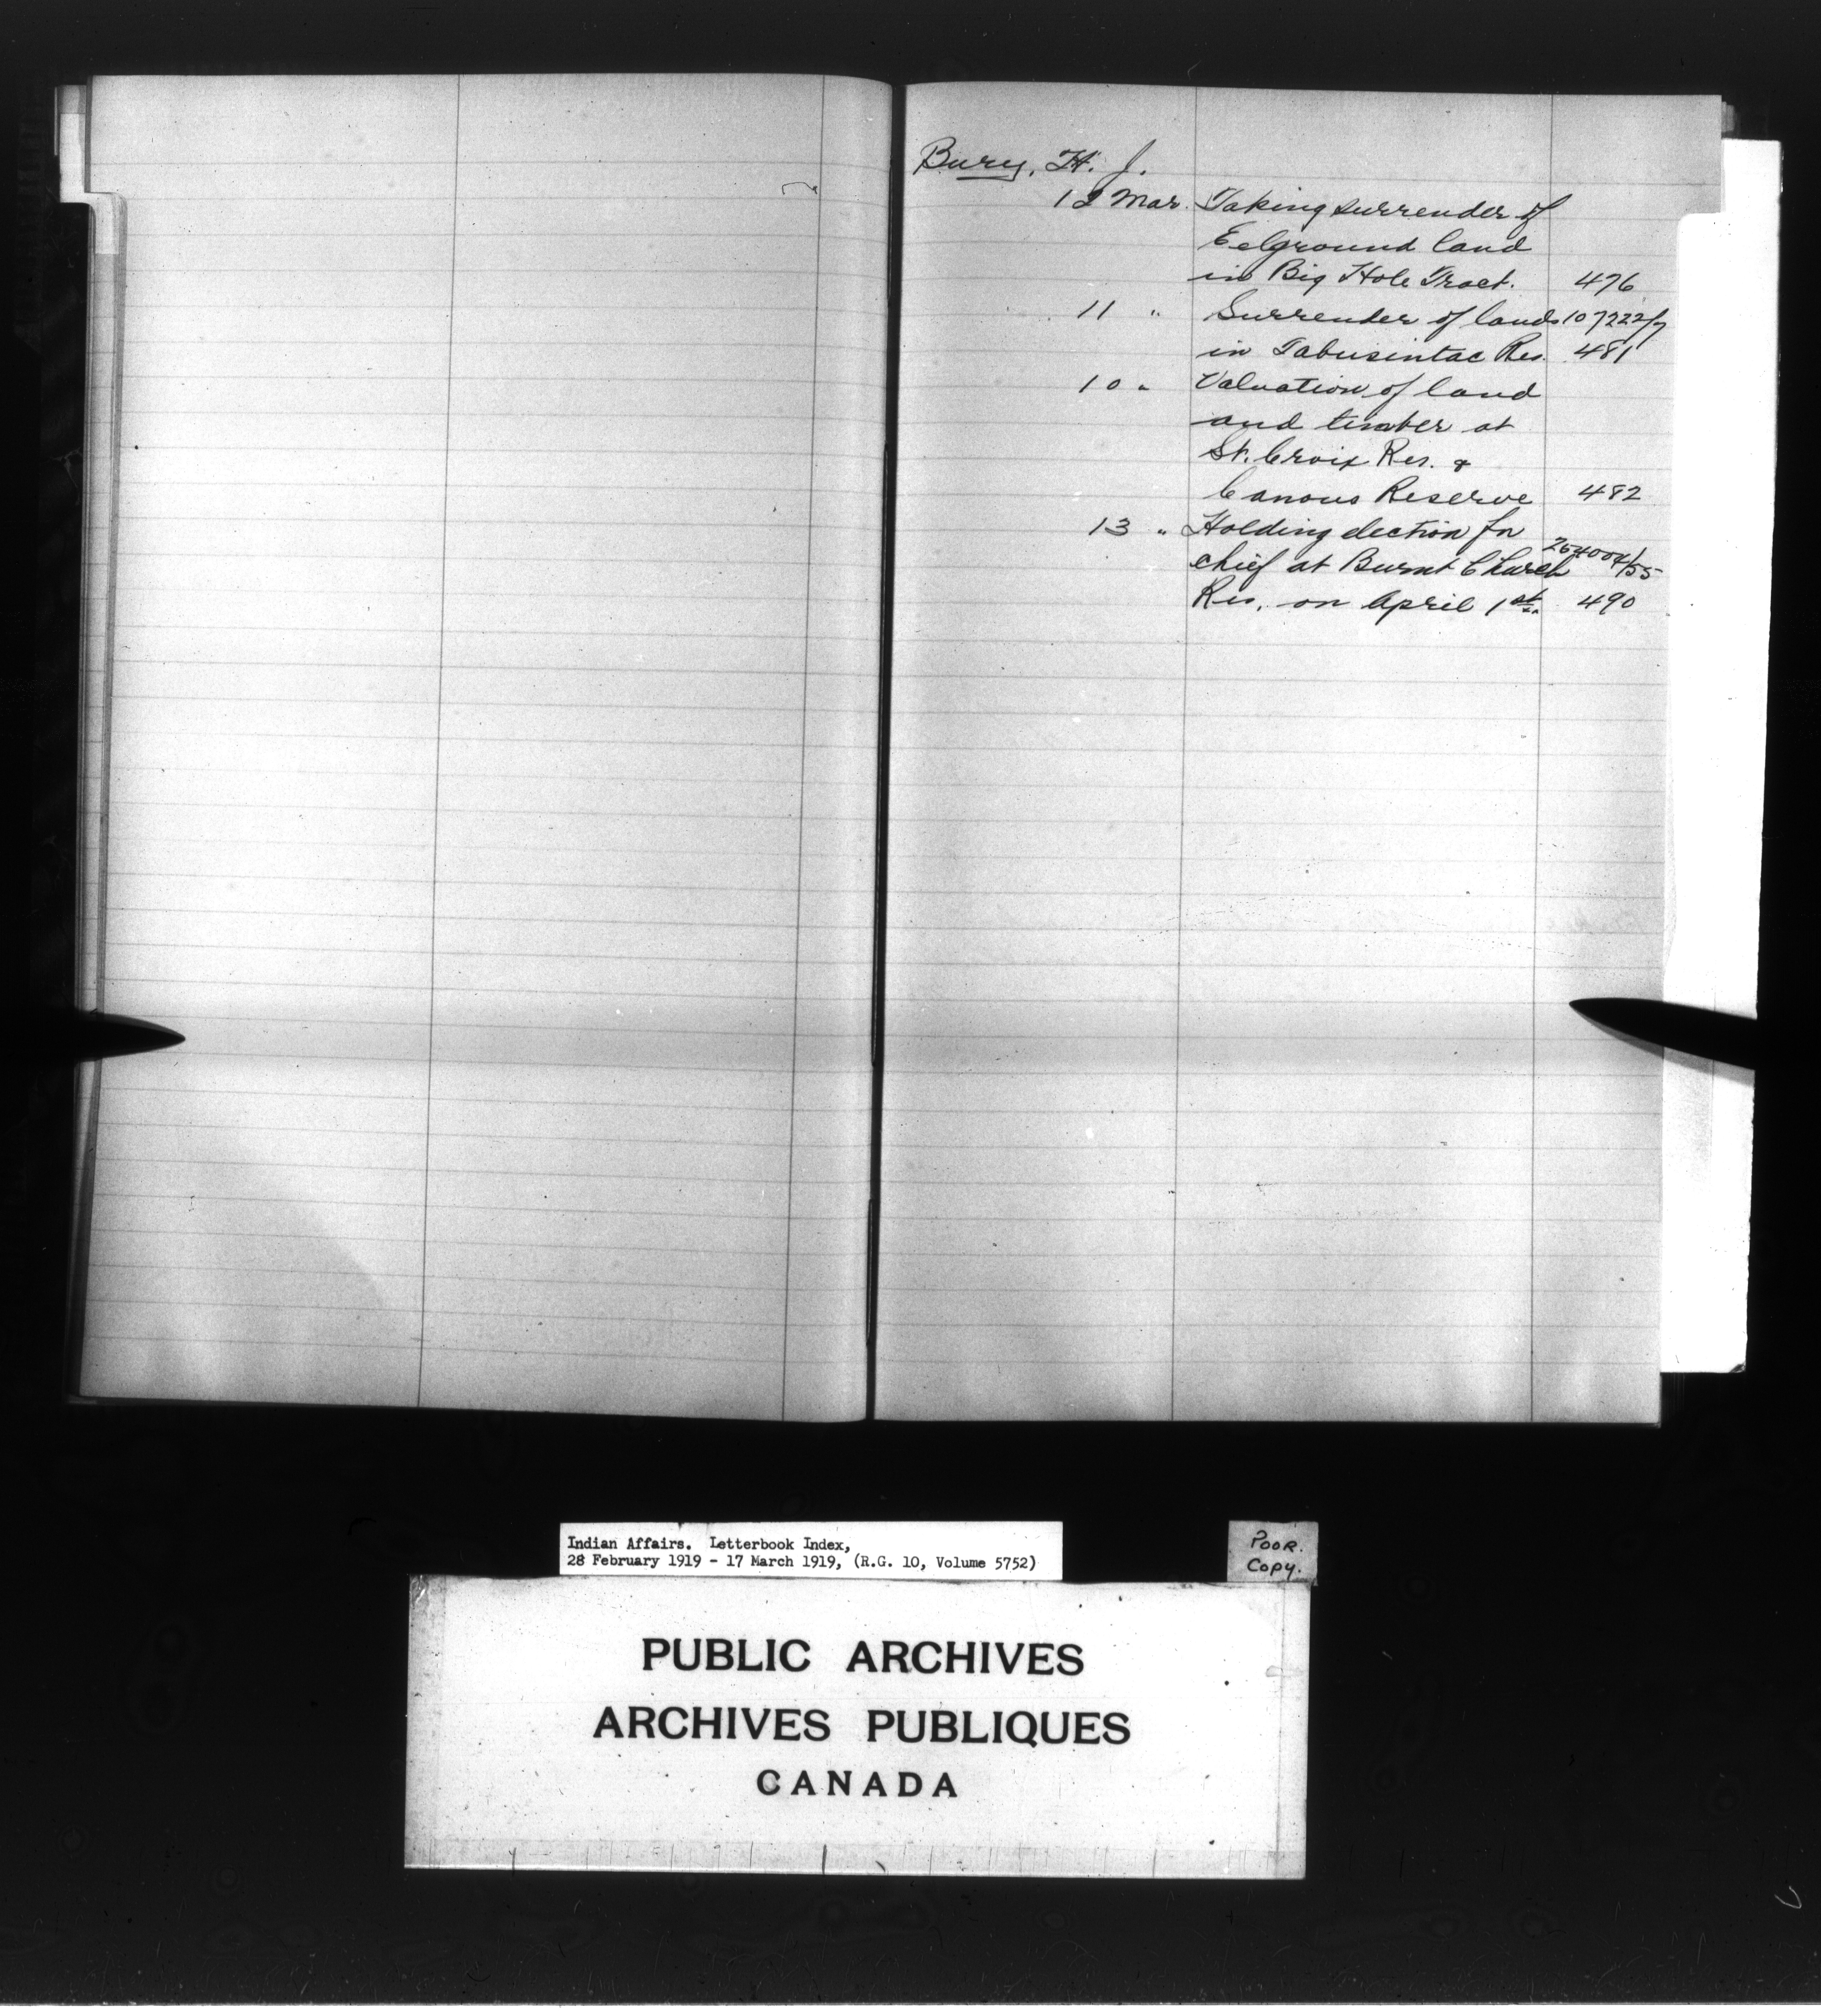 Bury, H. J.
12 Mar. Taking surrender of
Eelground land
in Big Hole Tract. 476
11 " Surrender of lands 107222/7
in Tabusintac Res. 481
10 " Valuation of land
and timber at
St. Croix Res. &
Canous Reserve 482
13 " Holding election for
chief at Burnt Church 254004/55
Res. on April 1st. 490
Indian Affairs. Letterbook Index,
28 February 1919 - 17 March 1919, (R.G. 10, Volume 5752)
POOR.
COPY.
PUBLIC ARCHIVES
ARCHIVES PUBLIQUES
CANADA